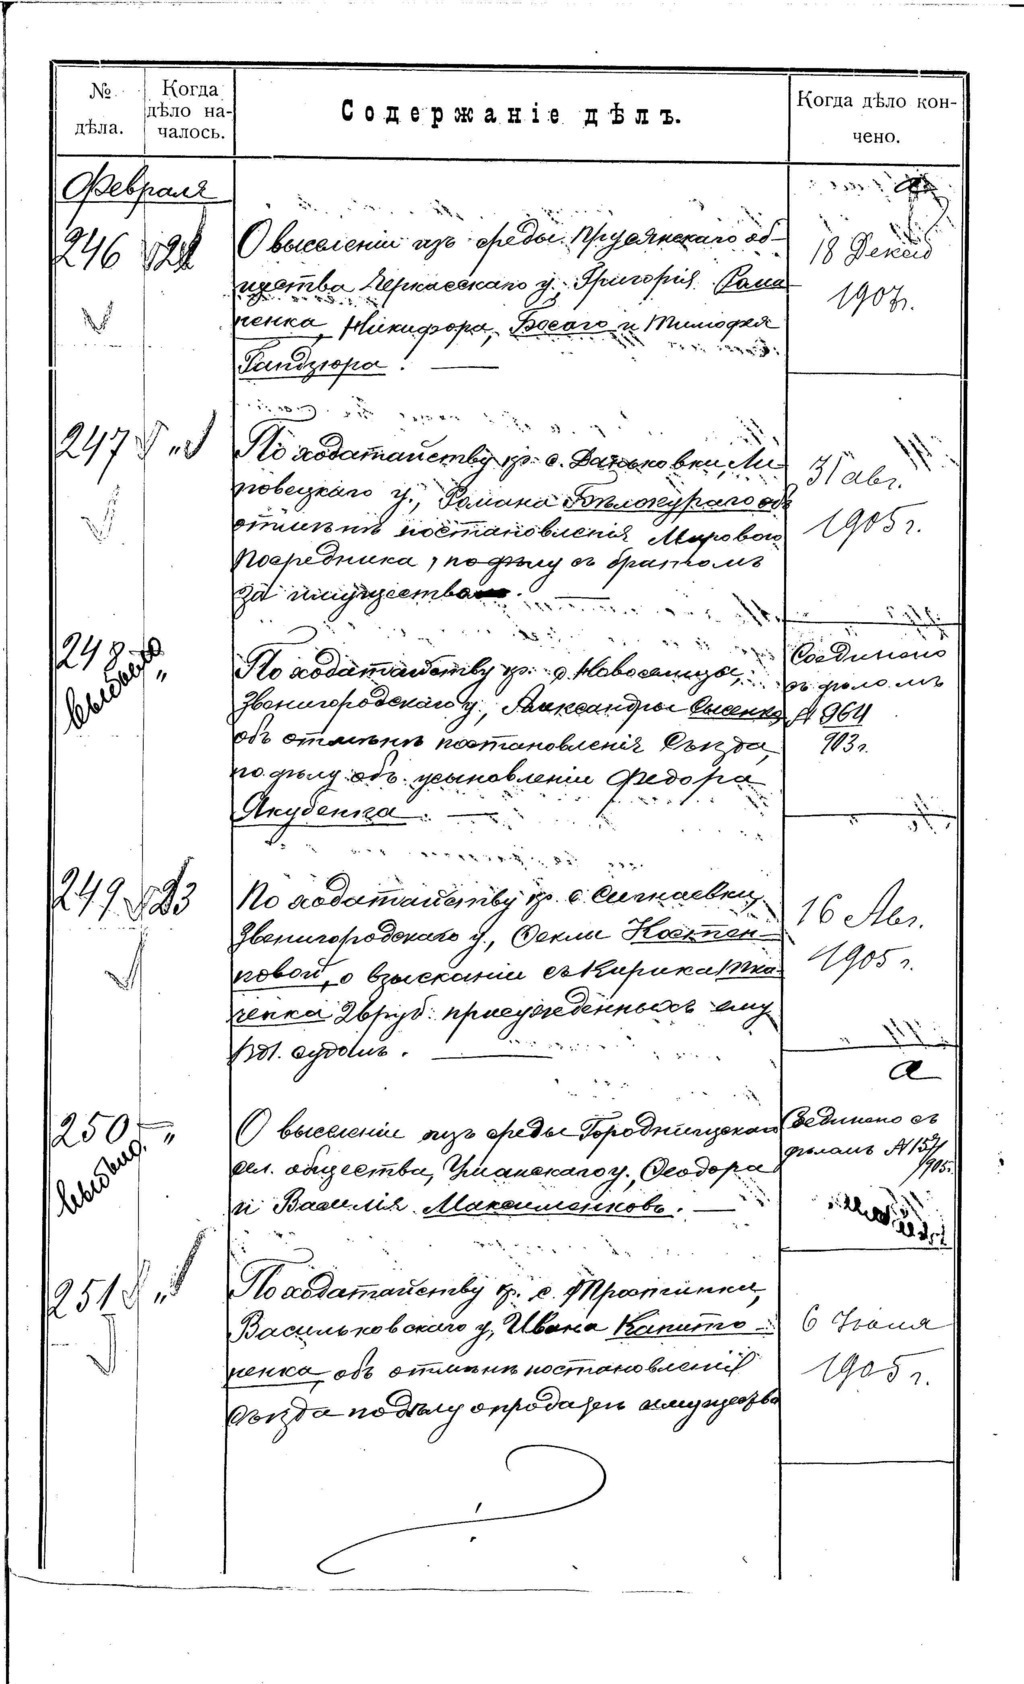 № дѣла.
Когда дѣло на-
чалось.
Содержаніе дѣлъ.
Когда дѣло кон-
чено.
Февраля
246
О выселеніи изъ среды Прусянскаго об-
щества Черкасскаго у. Григорія Рома
ненка, Никифора Босаго и Тимофея
Гандзюра.
18 Декаб
1907г.
247 "
По ходатайству кр. с. Даньковки, Ли
повецкаго у., Романа Бѣлокураго объ
отмѣнѣ постановленія Мирового
Посредника, по дѣлу съ братомъ
за имущество.
31 авг.
1905 г.
248 "
выбыло
По ходатайству кр. с. Новоселица,
Звенигородскаго у., Александры Сысенко
объ отмѣнѣ постановленія Съѣзда,
по дѣлу объ усыновленіи Федора
Якубенка.
Соединено
съ дѣломъ
№ 964
903 г.
249 23
По ходатайству кр. с. Сигнаевки,
Звенигородскаго у., Феклы Костен-
ковой, о взысканіи съ Кирика Тка
ченка 26 руб. присужденныхъ ему
Вол. судомъ.
16 Авг.
1905 г.
а
250 "
выбыло
О выселеніи изъ среды Городницкаго
сел. общества, Уманскаго у., Феодора
и Василія Максименковъ.
Соединено съ
дѣломъ № 152/905г.
251 "
По ходатайству кр. с. Тростинки,
Васильковскаго у, Ивана Капито-
ненка, объ отмѣнѣ постановленія
Съѣзда по дѣлу о продажѣ имущества
6 Іюля
1905 г.